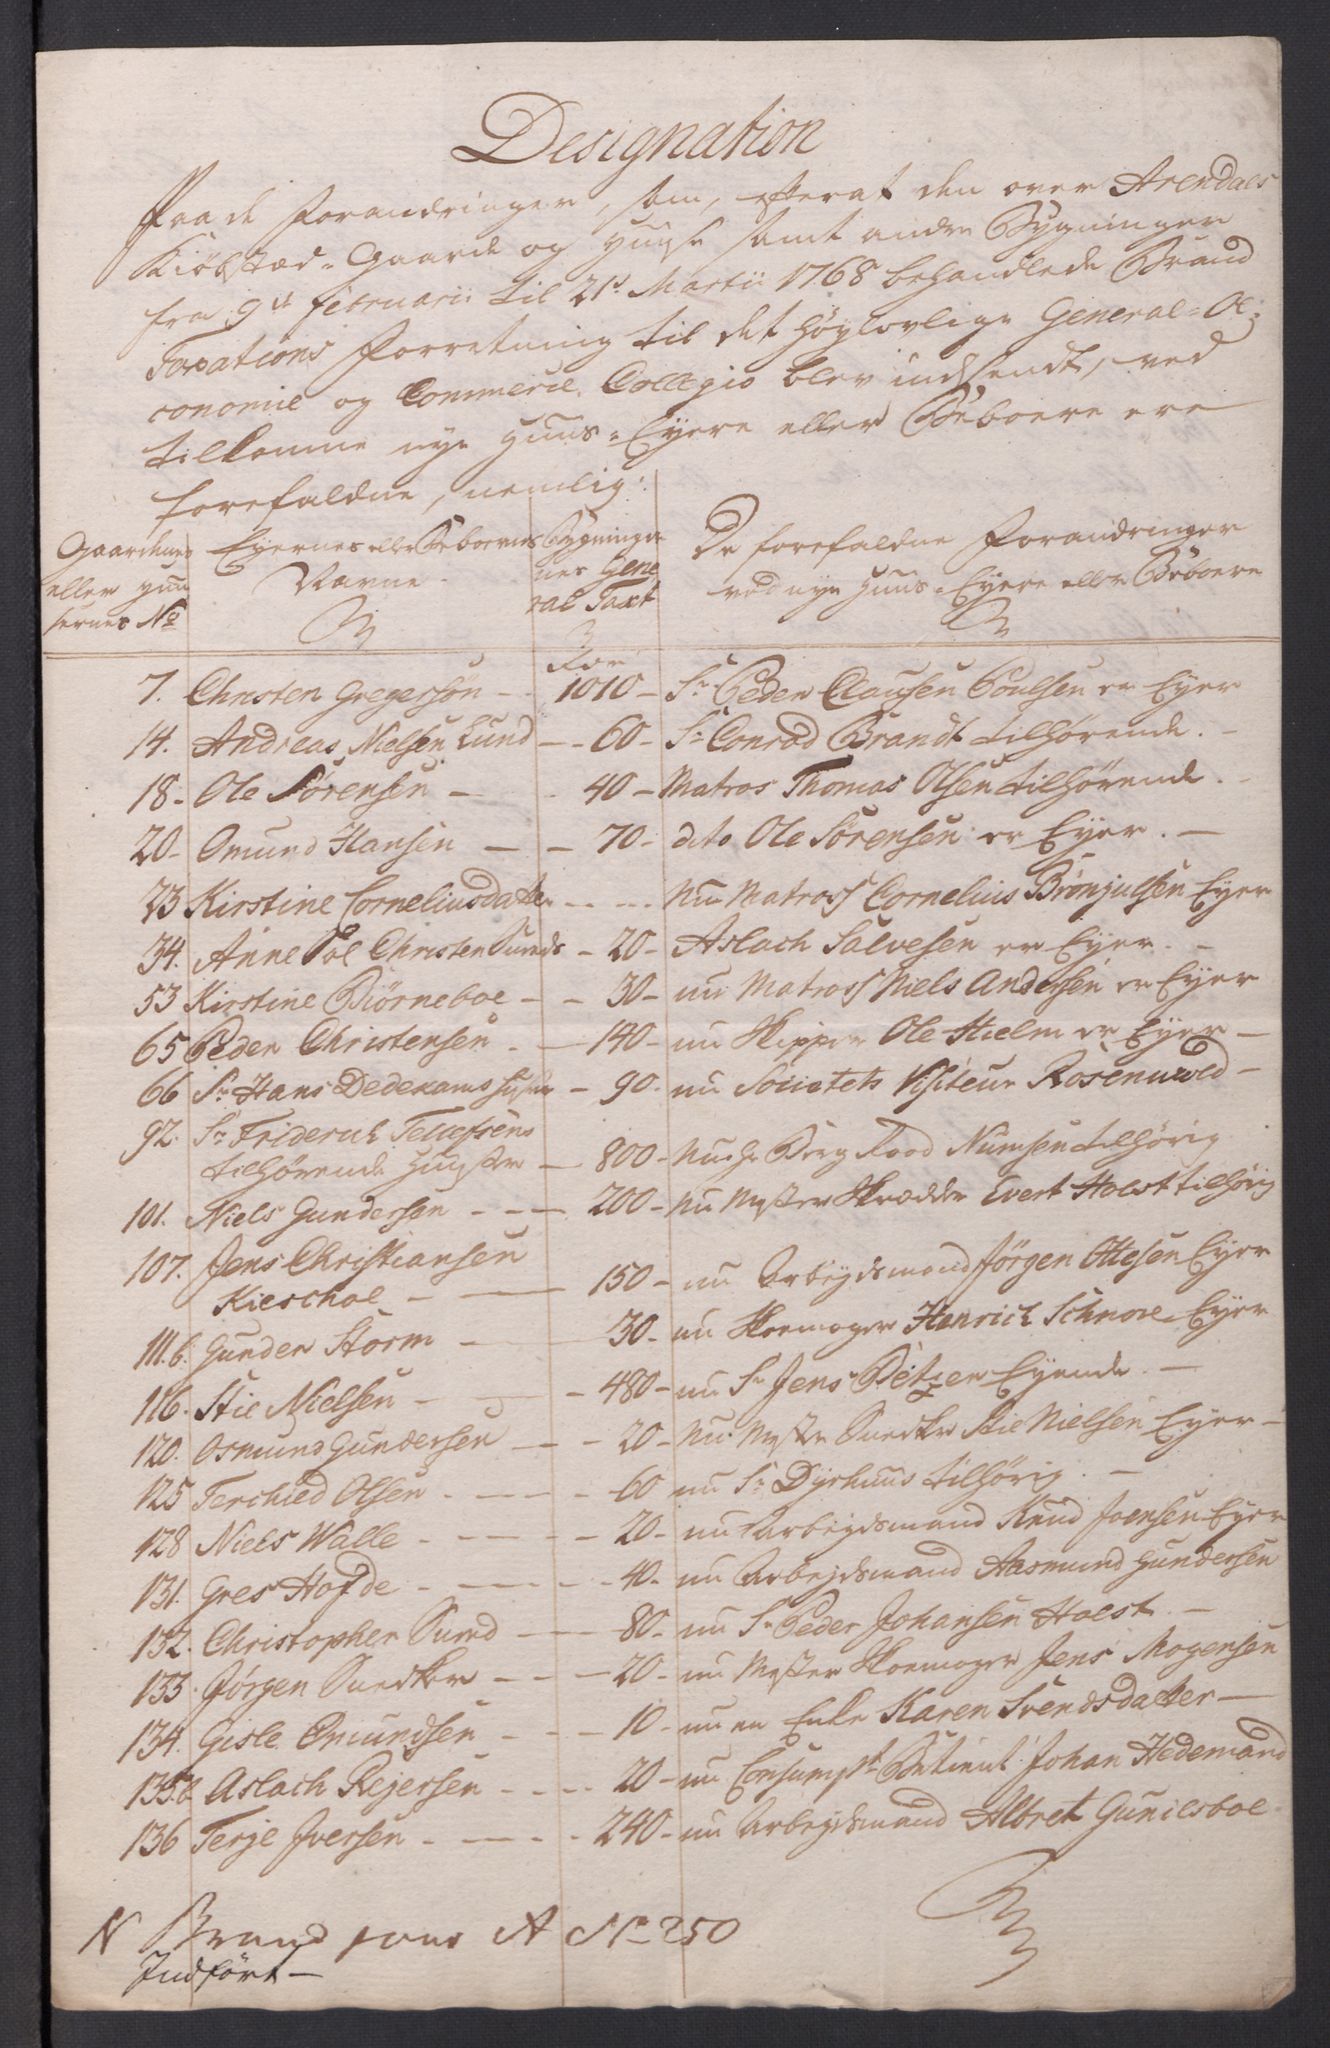 Designation
Paa de Forandringer, som, efterat den over Arendals
Kiöbstæd-Gaarde og Huuse samt andre Bygninger
fra 9de februarii til 21de Martii 1768 behandlede Brand
Taxations Forretning til det Höylovlige General-Oe-
conomie og Commerce Collegio blev indsendt, ved
tilkomne nye Huus-Eyere eller Beboere ere
forefaldne, nemlig:
Gaardenes eller Huu sernes No
Eyernes eller Beboernes Navne
Bygninger nes Gene ral Taxt
De forefaldne Forandringer ved nye Huus-Eyere eller Beboere
7. Christen Gregersön - 1010 - Sr Peder Clausen Poulsen er Eyer
14. Andreas Nielsen Lund - - 60 - Sr Conrad Brandt tilhörende. -
18 - Ole Sörensen - - 40 - Matros Thomas Olsen tilhörende. -
20 - Omund Hansen - - 70 - dito Ole Sörensen er Eyer. -
23 Kirstine Corneliusdatter - - - - Nu Matros Cornelius Brönjulsen Eyer
34. Anne Sal Christen Sunds - 20 - Aslach Salvesen er Eyer. -
53 Kirstine Biörneboe - - 30 - nu Matros Niels Andersen er Eyer
65 Peder Christensen - - 140 - nu Skipper Ole Hielm er Eyer -
66 Sr Hans Dedekams - 90 - nu Societets Visiteur Rosenwold -
92. Sr Friderich Tellefsens
tilhörende Huuse - 800 - Nu Hr Berg Raad Numsen tilhörig
101. Niels Gundersen - - - 200 - Nu Mester Skrædder Evert Holst tilhörig
107. Jens Christiansen
Kieschoe - - 150 - nu Arbeydsmand Jörgen Ottesen Eyer
111.b. Gunder Storm - - 30 - nu Skoemager Henrich Schnore Eyer
116. Stie Nielsen - - - 480 - nu Sr Jens Ditzen Eyende. -
120. Osmund Gundersen - - 20 - Nu Mester Snedker Stie Nielsen Eyer -
125 Terchied Olsen - - - - 60 nu Sr Dyrhuus tilhörig. -
128 Niels Walle - - - - 20 - nu Arbeydsmand Knud Joensen Eyer
131. Gres Hofde - - - - 40 - nu Arbejdsmand Aasmund Gundersen
132. Christopher Sund - - 80 - nu Sr Peder Johansen Holst -
133 Jörgen Snedker - - - 20 - nu Mester Skoemager Jens Mogensen
134. Gisle Omundsen - - - 10 - nu en Enke Karen Svendsdatter -
135.b Aslach Rejersen - - - - 20 - nu Consumpt. Betient Johan Hedemand
136 Terje Iversen - - - - 240 - nu Arbeydsmand Albret Gunilsboe -
N Brand A No 250
Indfört -